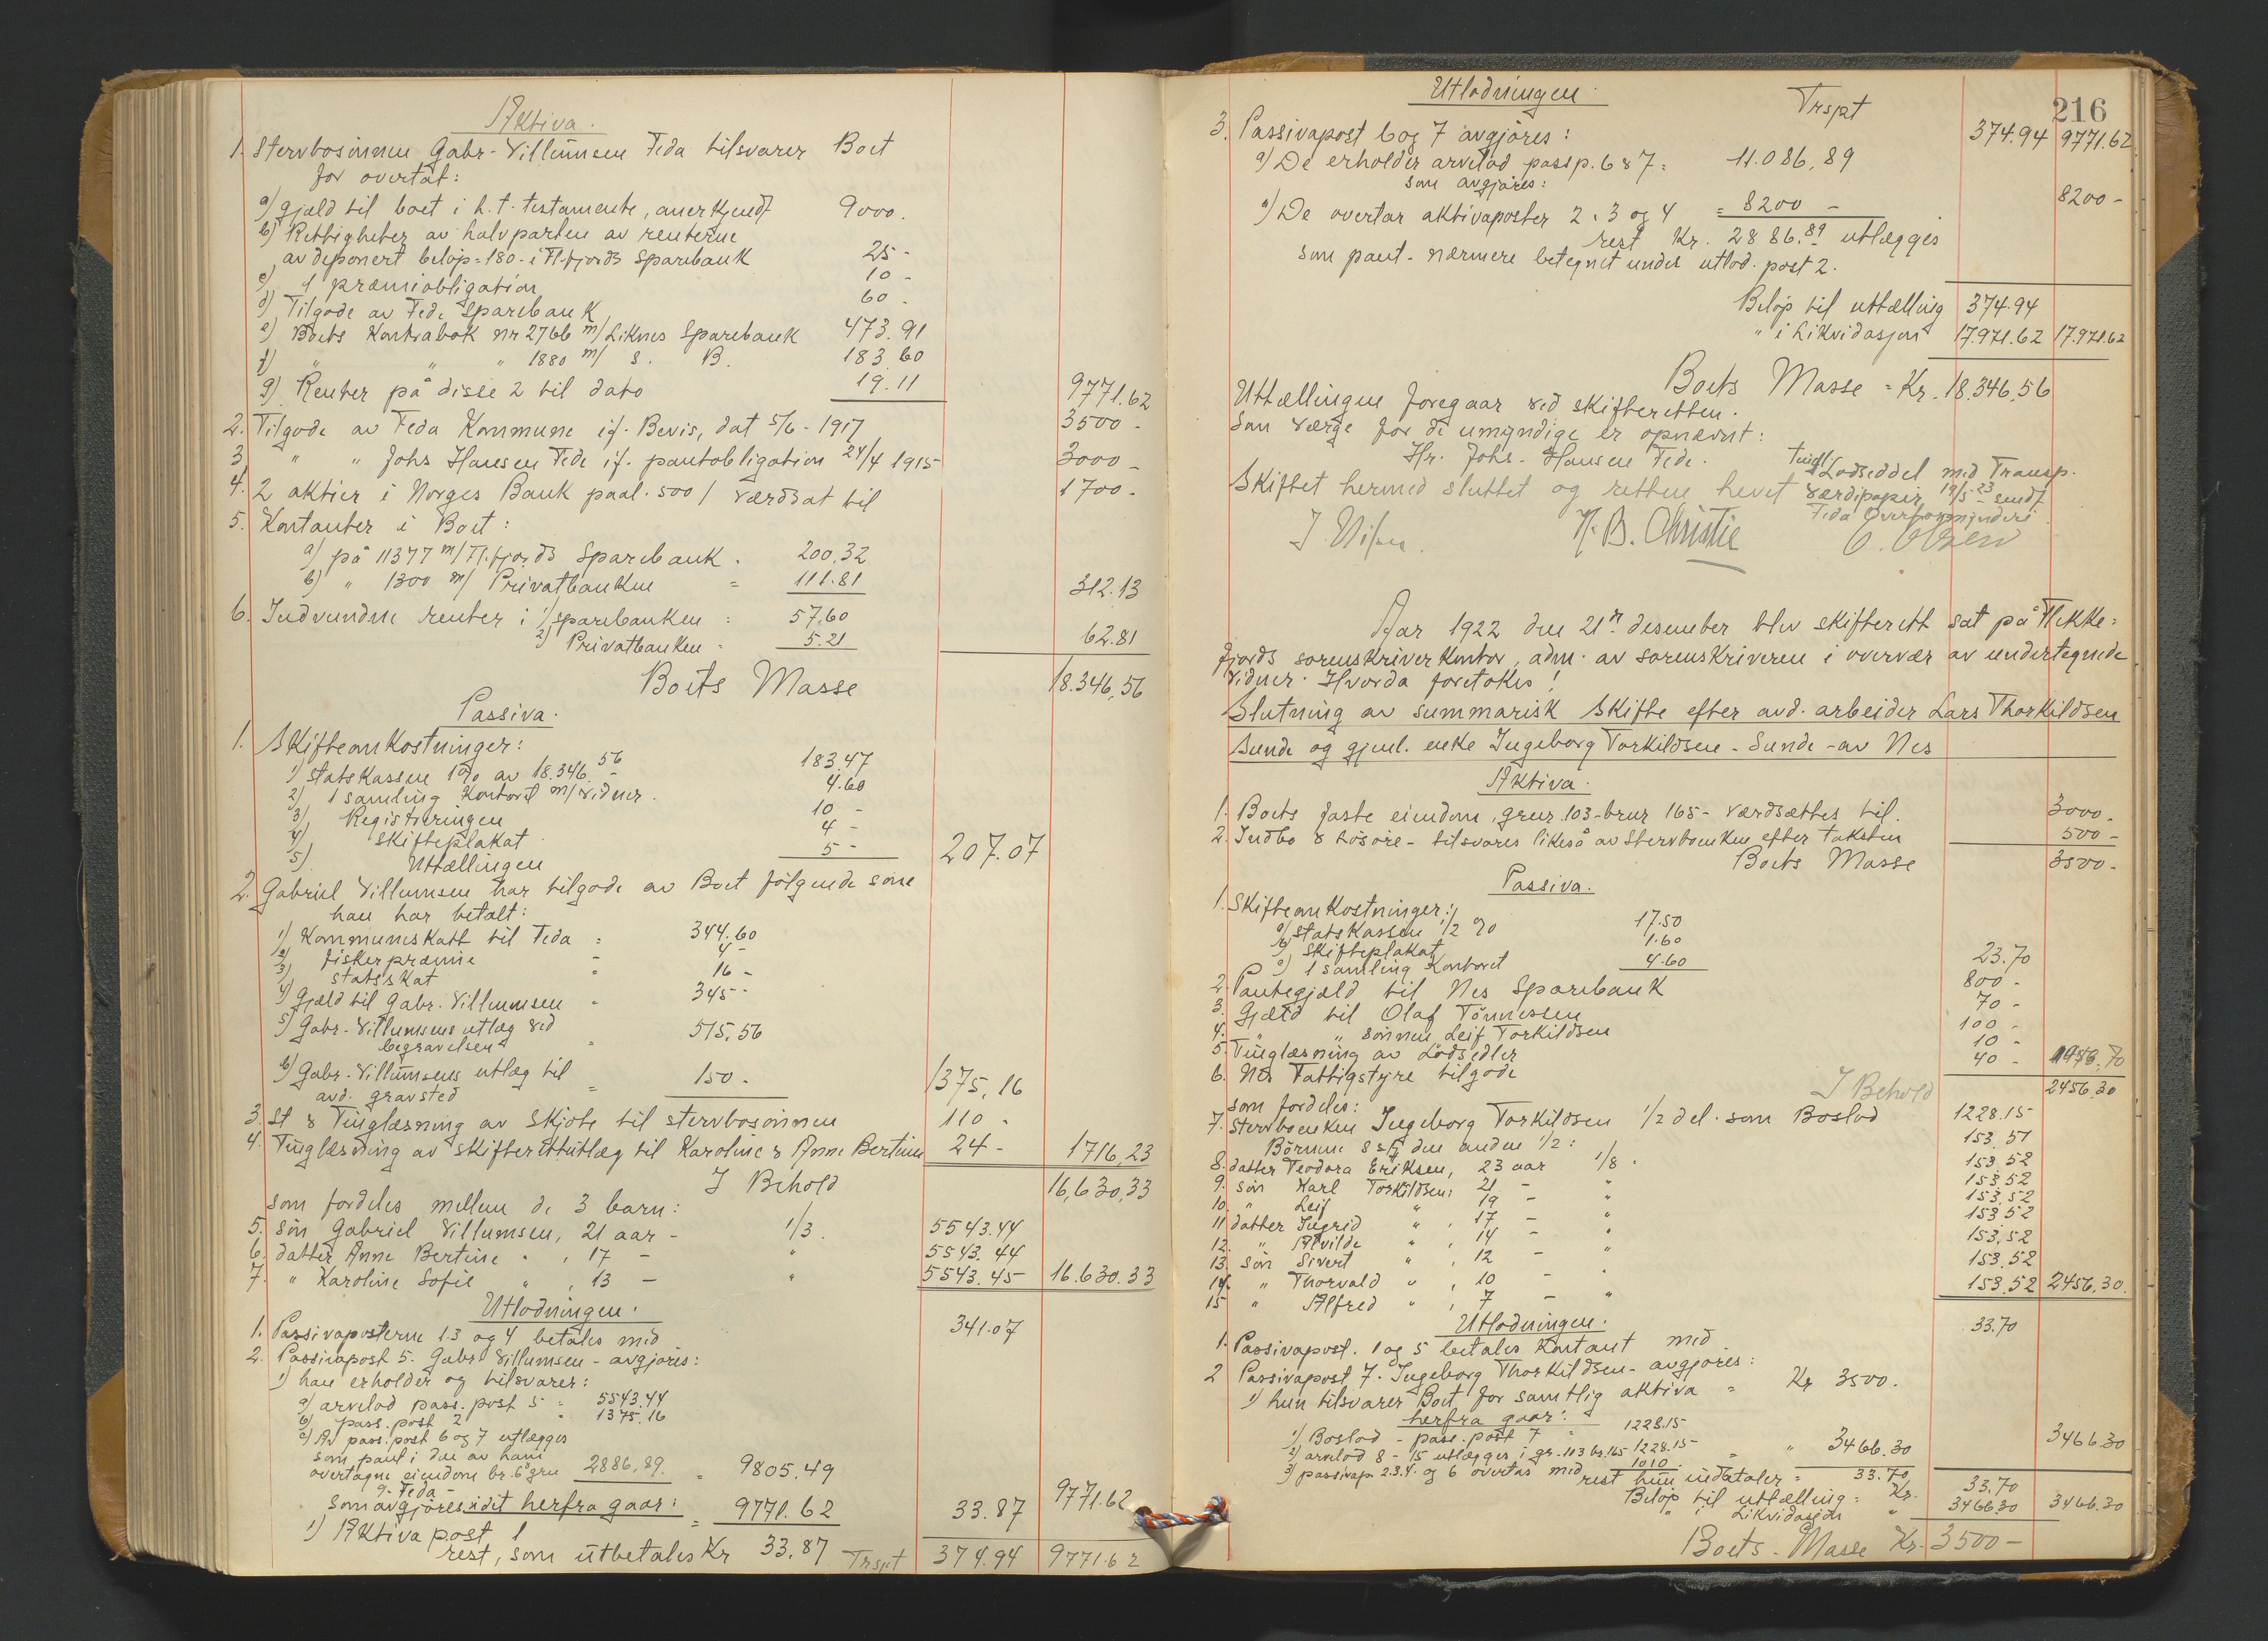 Aktiva.
1. Stervbosönnen Gabr. Villumsen Feda tilsvarer Boet
for overtat:
a) gjæld til boet i h. t. testamente, anerkjendt 9000.
b) Rettigheter av halvparten av renterne
av deponert belöp = 180 - i Fl.fjords Sparebank 25 -
c) 1 præmieobligation 10 -
d) Tilgode av Fede Sparebank 60 -
e) Boets Kontrabok nr 2766 m/ Liknes Sparebank 473.91
f) " " " 1880 m/ S. B. 183.60
g) Renter på disse 2 til dato 19.11 9771.62
2. Tilgode av Feda Kommune if. Bevis, dat 5/6 - 1917 3500 -
3 " " Johs Hansen Fede if. pantobligation 24/4 1915 3000 -
4. 2 aktier i Norges Bank paal. 500 / værdsat til 1700 -
5. Kontanter i Boet:
a) på 11377 m/ Fl.fjords Sparebank. 200,32
b) " 1300 m/ Privatbanken = 111.81 312.13
6. Indvundne renter i 1) sparebanken = 57.60
2) Privatbanken = 5.21 62.81
Boets Masse 18.346,56
Passiva.
1. Skifteomkostninger:
1) Statskassen 1% av 18.346.56 183.47
2) 1 samling Kontoret m/ vidner. 4.60
3) Registreringen 10 -
4) Skifteplakat 4 -
5) Uttællingen 5 - 207.07
2. Gabriel Villumsen har tilgode av Boet fölgende som
han har betalt:
1) Kommuneskatt til Feda = 344.60
2) fiskerpræmie = 4 -
3) Statsskat = 16 -
4) Gjæld til Gabr. Villumsen = 345 -
5) Gabr. Villumsens utlæg ved
begravelsen = 515,56
6) Gabr. Villumsens utlæg til
avd. gravsted = 150 - 1375,16
3. St & Tinglæsning av Skjöte til stervbosönnen 110 -
4. Tinglæsning av skifterettsutlæg til Karoline & Anne Bertine 24 - 1716,23
I Behold 16,630,33
som fordeles mellem de 3 barn:
5. Sön Gabriel Villumsen, 21 aar - 1/3. 5543.44
6. datter Anne Bertine " , 17 - " 5543.44
7. " Karoline Sofie " , 13 - " 5543.45 16.630.33
Utlodningen.
1. Passivaposterne 1.3 og 4 betales med 341.07
2. Passivapost 5. Gabr Villumsen - avgjöres:
1) han erholder og tilsvarer:
a) arvelod pass. post 5 = 5543.44
b) pass. post 2 " 1375.16
c) Av pass. post 6 og 7 utlægges
som pant i den av ham
overtagne eiendom br. 6 gnr 2886,89. = 9805,49
9. Feda -
som avgjöres idet herfra gaar:
1) Aktiva post 1 = 9771.62 9771.62
rest, som utbetales Kr 33,87 33.87
Trspt 374.94 9771.62
216
Utlodningen.
Trspt 374.94 9771.62
3. Passivapost 6 og 7 avgjöres:
a) De erholder arvelod passp. 6 & 7 = 11.086,89
som avgjöres:
a) De overtar aktivaposter 2. 3 og 4 = 8200 - 8200 -
rest Kr. 2886.89 utlægges
som pant - nærmere betegnet under utlod. post 2.
Belöp til uttælling 374.94
" i Likvidasjon 17.971.62 17.971.62
Boets Masse = Kr. 18.346,56
Uttællingen foregaar ved skifteretten.
Som værge for de umyndige er opnævnt:
Hr. Johs. Hansen Fede.
Skiftet hermed sluttet og retten hevet
Tingl. Lodseddel med Transp.
værdipapir 19/5-23 sendt
Feda Overformynderi
J. Nilsen. N. B. Christie O. Olsen
Aar 1922 den 21n desember blev skifterett sat på Flekke=
fjords sorenskriverkontor, adm. av sorenskriveren i overvær av undertegnede
vidner. Hvorda foretokes!
Slutning av summarisk Skifte efter avd. arbeider Lars Thorkildsen
Sunde og gjenl. enke Ingeborg Torkildsen - Sunde - av Nes
Aktiva.
1. Boets faste eiendom, gnr. 103 - bnr 165 - værdsættes til. 3000.
2. Indbo & Lösöre - tilsvares likeså av Stervboenken efter taksten 500 -
Boets Masse 3500 -
Passiva.
1. Skifteomkostninger:
a) Statskassen 1/2 % 17.50
b) Skifteplakat 1.60
c) 1 samling Kontoret 4.60 23.70
2. Pantegjæld til Nes Sparebank 800 -
3. Gjæld til Olaf Tönnessen 70 -
4. " " sönnen Leif Torkildsen 100 -
5. Tinglæsning av Lodsedler 10 -
6. Nes Fattigstyre tilgode 40 - 1043.70
I Behold 2456.30
som fordeles:
7. Stervboenken Ingeborg Torkildsen 1/2 del. som Boslod 1228.15
Börnene 8 stk den anden 1/2:
8. datter Teodora Eriksen, 23 aar 1/8 " 153.51
9. sön Karl Torkildsen, 21 - " 153.52
10. " Leif " , 19 - " 153.52
11 datter Ingrid " , 17 - " 153.52
12. " Alvilde " , 14 - " 153.52
13. Sön Sivert " , 12 - " 153.52
14. " Thorvald " , 10 - " 153.52
15 " Alfred " , 7 - " 153.52 2456.30.
Utlodningen.
1. Passivapost. 1 og 5 betales Kontant med 33.70
2 Passivapost 7. Ingeborg Thorkildsen - avgjöres:
1) hun tilsvarer Boet for samtlig aktiva = Kr 3500.
herfra gaar:
1) Boslod - pass. post 7 " 1228.15
2) arvelod 8 - 15 utlægges i gr. 103 br. 165 1228.15 -
3) passivap 2.3.4. og 6 overtas med 1010. = " 3466.30 3466.30
rest hun indbetaler = 33.70
Belöp til uttælling = Kr. 33.70
" i Likvidasjon " 3466.30 3466.30
Boets Masse Kr. 3500 -